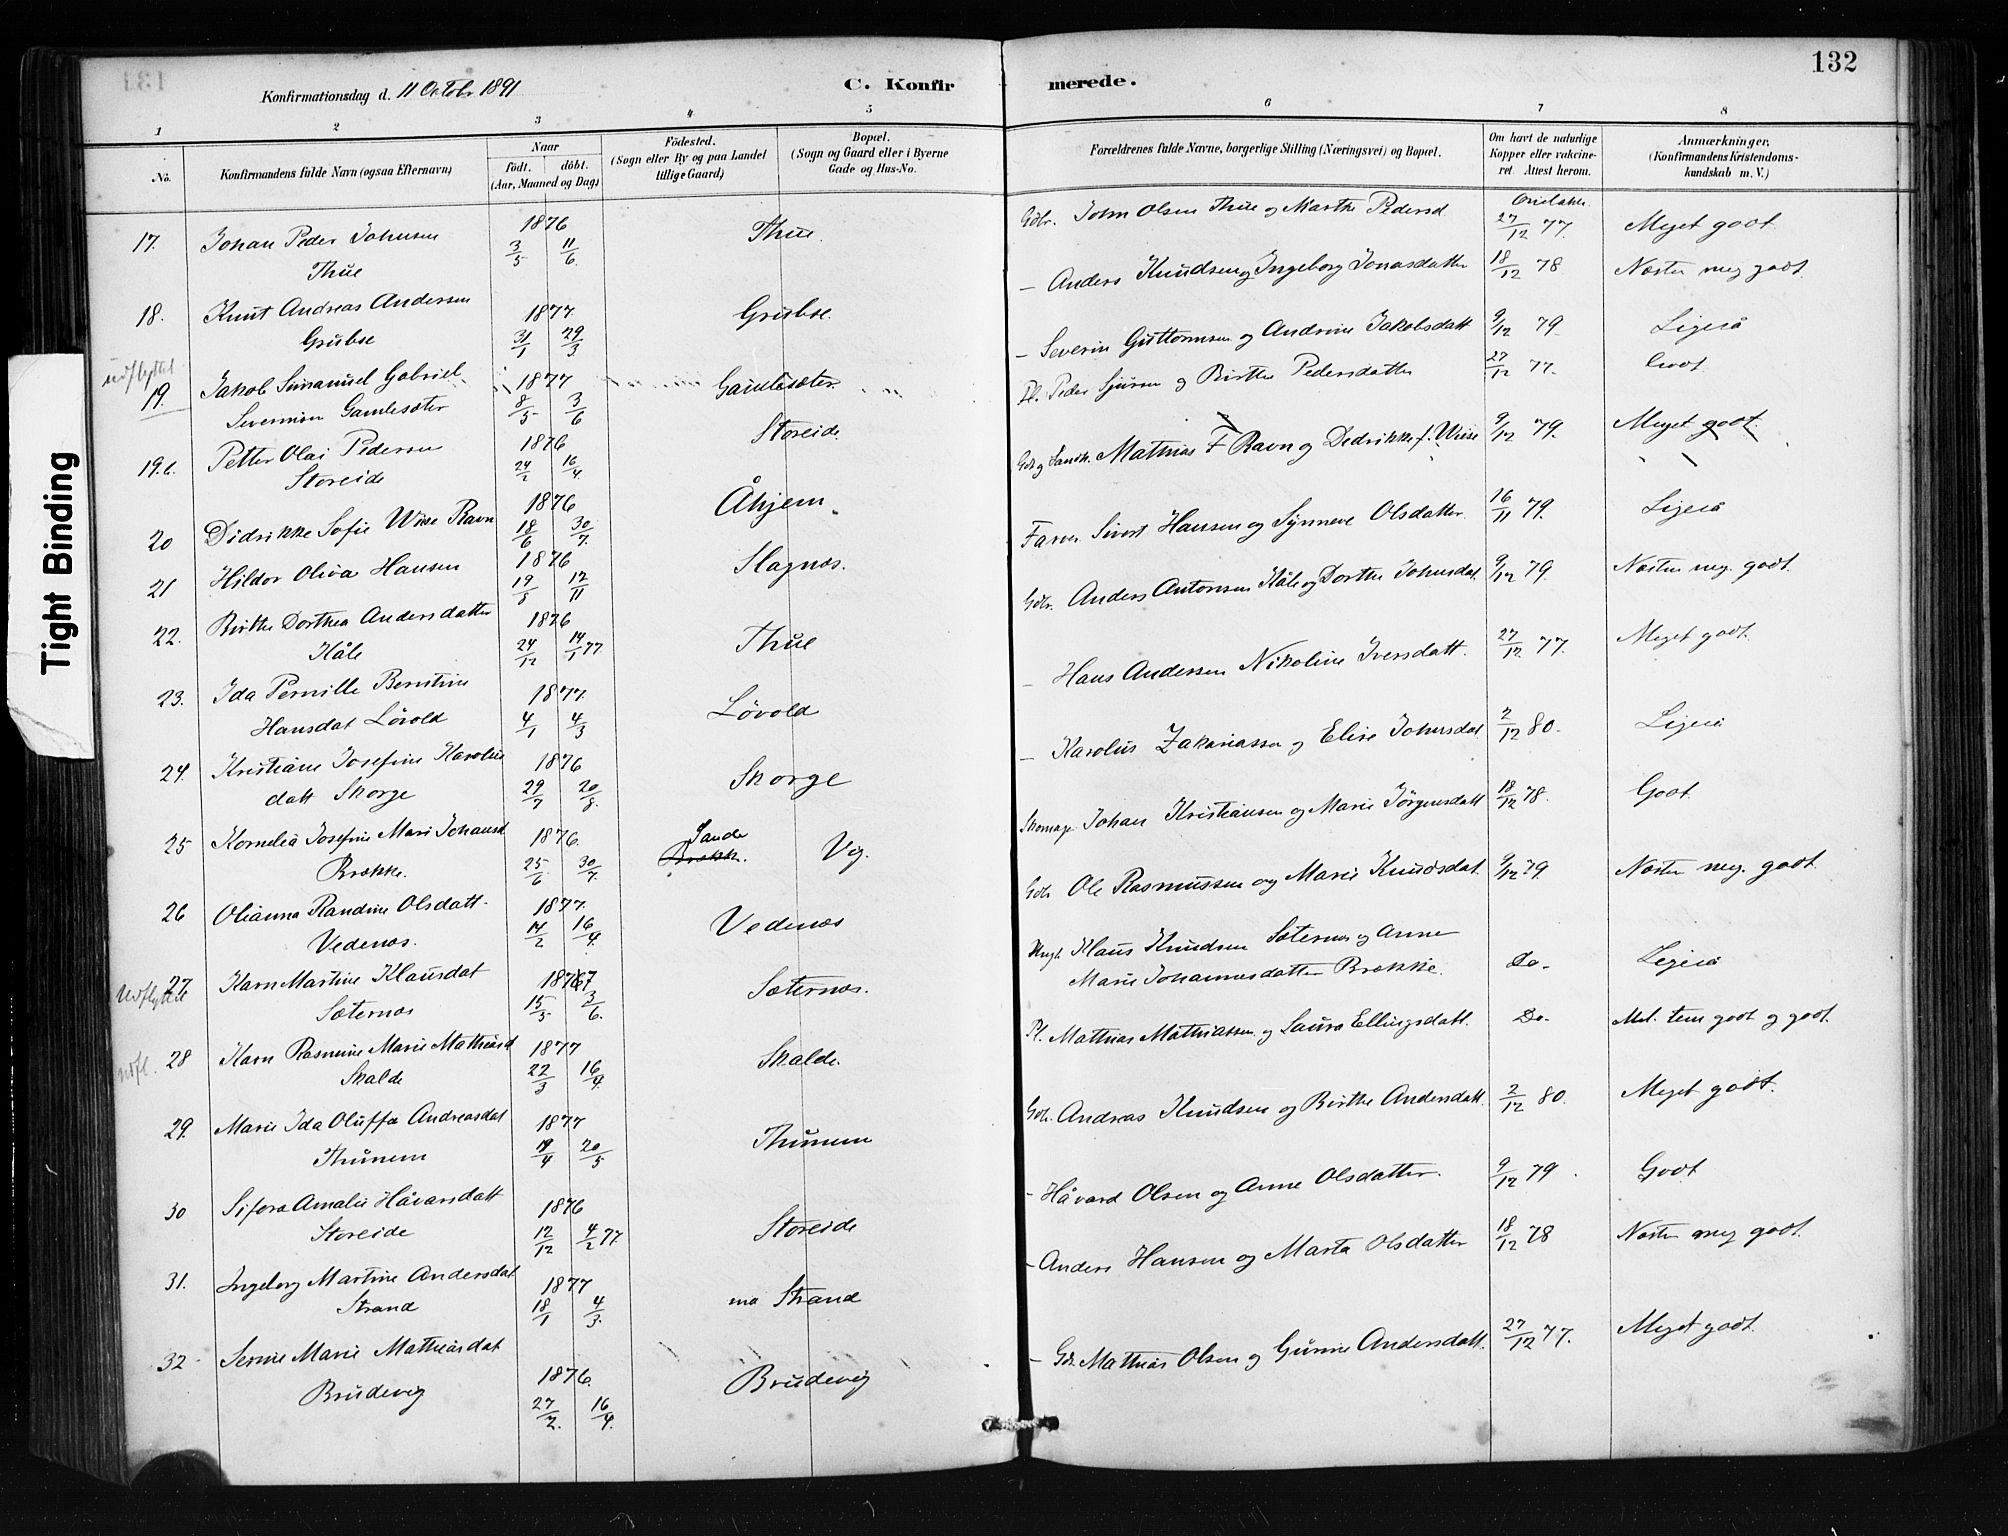 132
Konfirmationsdag d. 11 Octobr 1891
C. Konfirmerede.
1 2 3 4 5 6 7 8
No.
Konfirmandens fulde Navn (ogsaa Efternavn)
Naar
födt. döbt.
(Aar, Maaned og Dag)
Födested.
(Sogn eller By og paa Landet
tillige Gaard)
Bopæl.
(Sogn og Gaard eller i Byerne
Gade og Hus-No.
Forældrenes fulde Navne, borgerlige Stilling (Næringsvei) og Bopæl.
Om havt de naturlige
Kopper eller vakcine-
ret. Attest herom.
Anmærkninger.
(Konfirmandens Kristendoms-
kundskab m. V.)
Tight Binding
17. Johan Peder Johnsen 1876 Thue. Gdbr. John Olsen Thue og Marthe Pedersd. 27/12 77. Meget godt.
Thue 3/5 11/6
18. Knut Andreas Andersen 1877 Grisbæ. – Anders Knudsen og Ingeborg Jonasdatter 18/12 78 Næsten meg godt.
Grübæ 31/1 29/3
udflyttet
19. Jakob Emanuel Gabriel 1877 Gamlesæter – Severin Guttormsen og Andrine Jakobsdatt 9/12 79 Ligeså
Severinsen Gamlesæter 8/5 3/6
19.b. Petter Olai Pedersen 1876 Storeide. Pl. Peder Sjursen og Birthe Pedersdatter 27/12 77. Godt.
Storeide 24/2 16/4
20 Didrikke Sofie Wise Ravn 1876 Åhjem. Mathias F Ravn og Dedrikke f. Wiese 9/12 79. Meget godt.
18/6 30/7
21 Hildor Oliva Hansen 1876 Slagnæs. Farver Sivert Hansen og Synneve Olsdatter 16/11 79. Ligeså
19/8 12/11
22. Birthe Dorthea Andersdatter 1876 Thue Gdbr. Anders Antonsen Kåle og Dorthe Johnsdat 9/12 79. Næsten meg. godt.
Kåle 24/12 14/1 77
23. Ida Pernille Berntine 1877. Lövold – Hans Andersen Nikoline Iversdatt. 27/12 77. Meget godt.
Hansdat Lövold 4/1 4/3
24. Kristiane Josefine Karolus 1876 Skorge – Karolus Zakariassen og Elise Johnsdat 2/12 80. Ligeså
datt Skorge 29/7 20/8
25 Kornelia Josefine Mari Johansd 1876. Sande Brække. Vig. Skomag. Johan Kristiansen og Marie Jörgensdatt 18/12 78. Godt.
Brække. 25/6 30/7
26 Olianna Randine Olsdatt. 1877. Vedenæs Gdbr Ole Rasmussen og Marie Knudsdat 9/12 79. Næsten meg. godt.
Vedenæs. 14/2 16/4
Udflyttet
27 Karn Martine Klausdat 1877 Sæternæs. Ungk. Klaus Knudsen Sæternæs og Anne Do. Ligeså
Sæternæs 15/5 3/6 Marie Johannesdatter Brække.
udfl.
28 Karn Rasmine Marie Mathiasd 1877 Skalde. Pl. Mathias Mathiassen og Laura Ellingsdatt. Do. Mel. tem godt og godt.
Skalde 22/3 16/4
29. Marie Ida Oluffa Andreasdat 1877 Thunem Gdbr. Andreas Knudsen og Birthe Andersdatt 2/12 80. Meget godt.
Thunem 19/4 20/5
30 Sifora Amalia Håvarsdatt 1876 Storeide – Håvard Olsen og Anne Olsdatter. 9/12 79. Godt
Storeide 12/12 4/2 77.
31. Ingeborg Martine Andersdat 1877 Strand – Anders Hansen og Marta Olsdatter 18/12 78 Næsten meg godt.
Strand 18/1 4/3.
32 Serine Marie Mathiasdat 1876. Brudevig – Gdr. Mathias Olsen og Gunnie Andersdatt. 27/12 77. Meget godt.
Brudevig 27/2. 16/4.